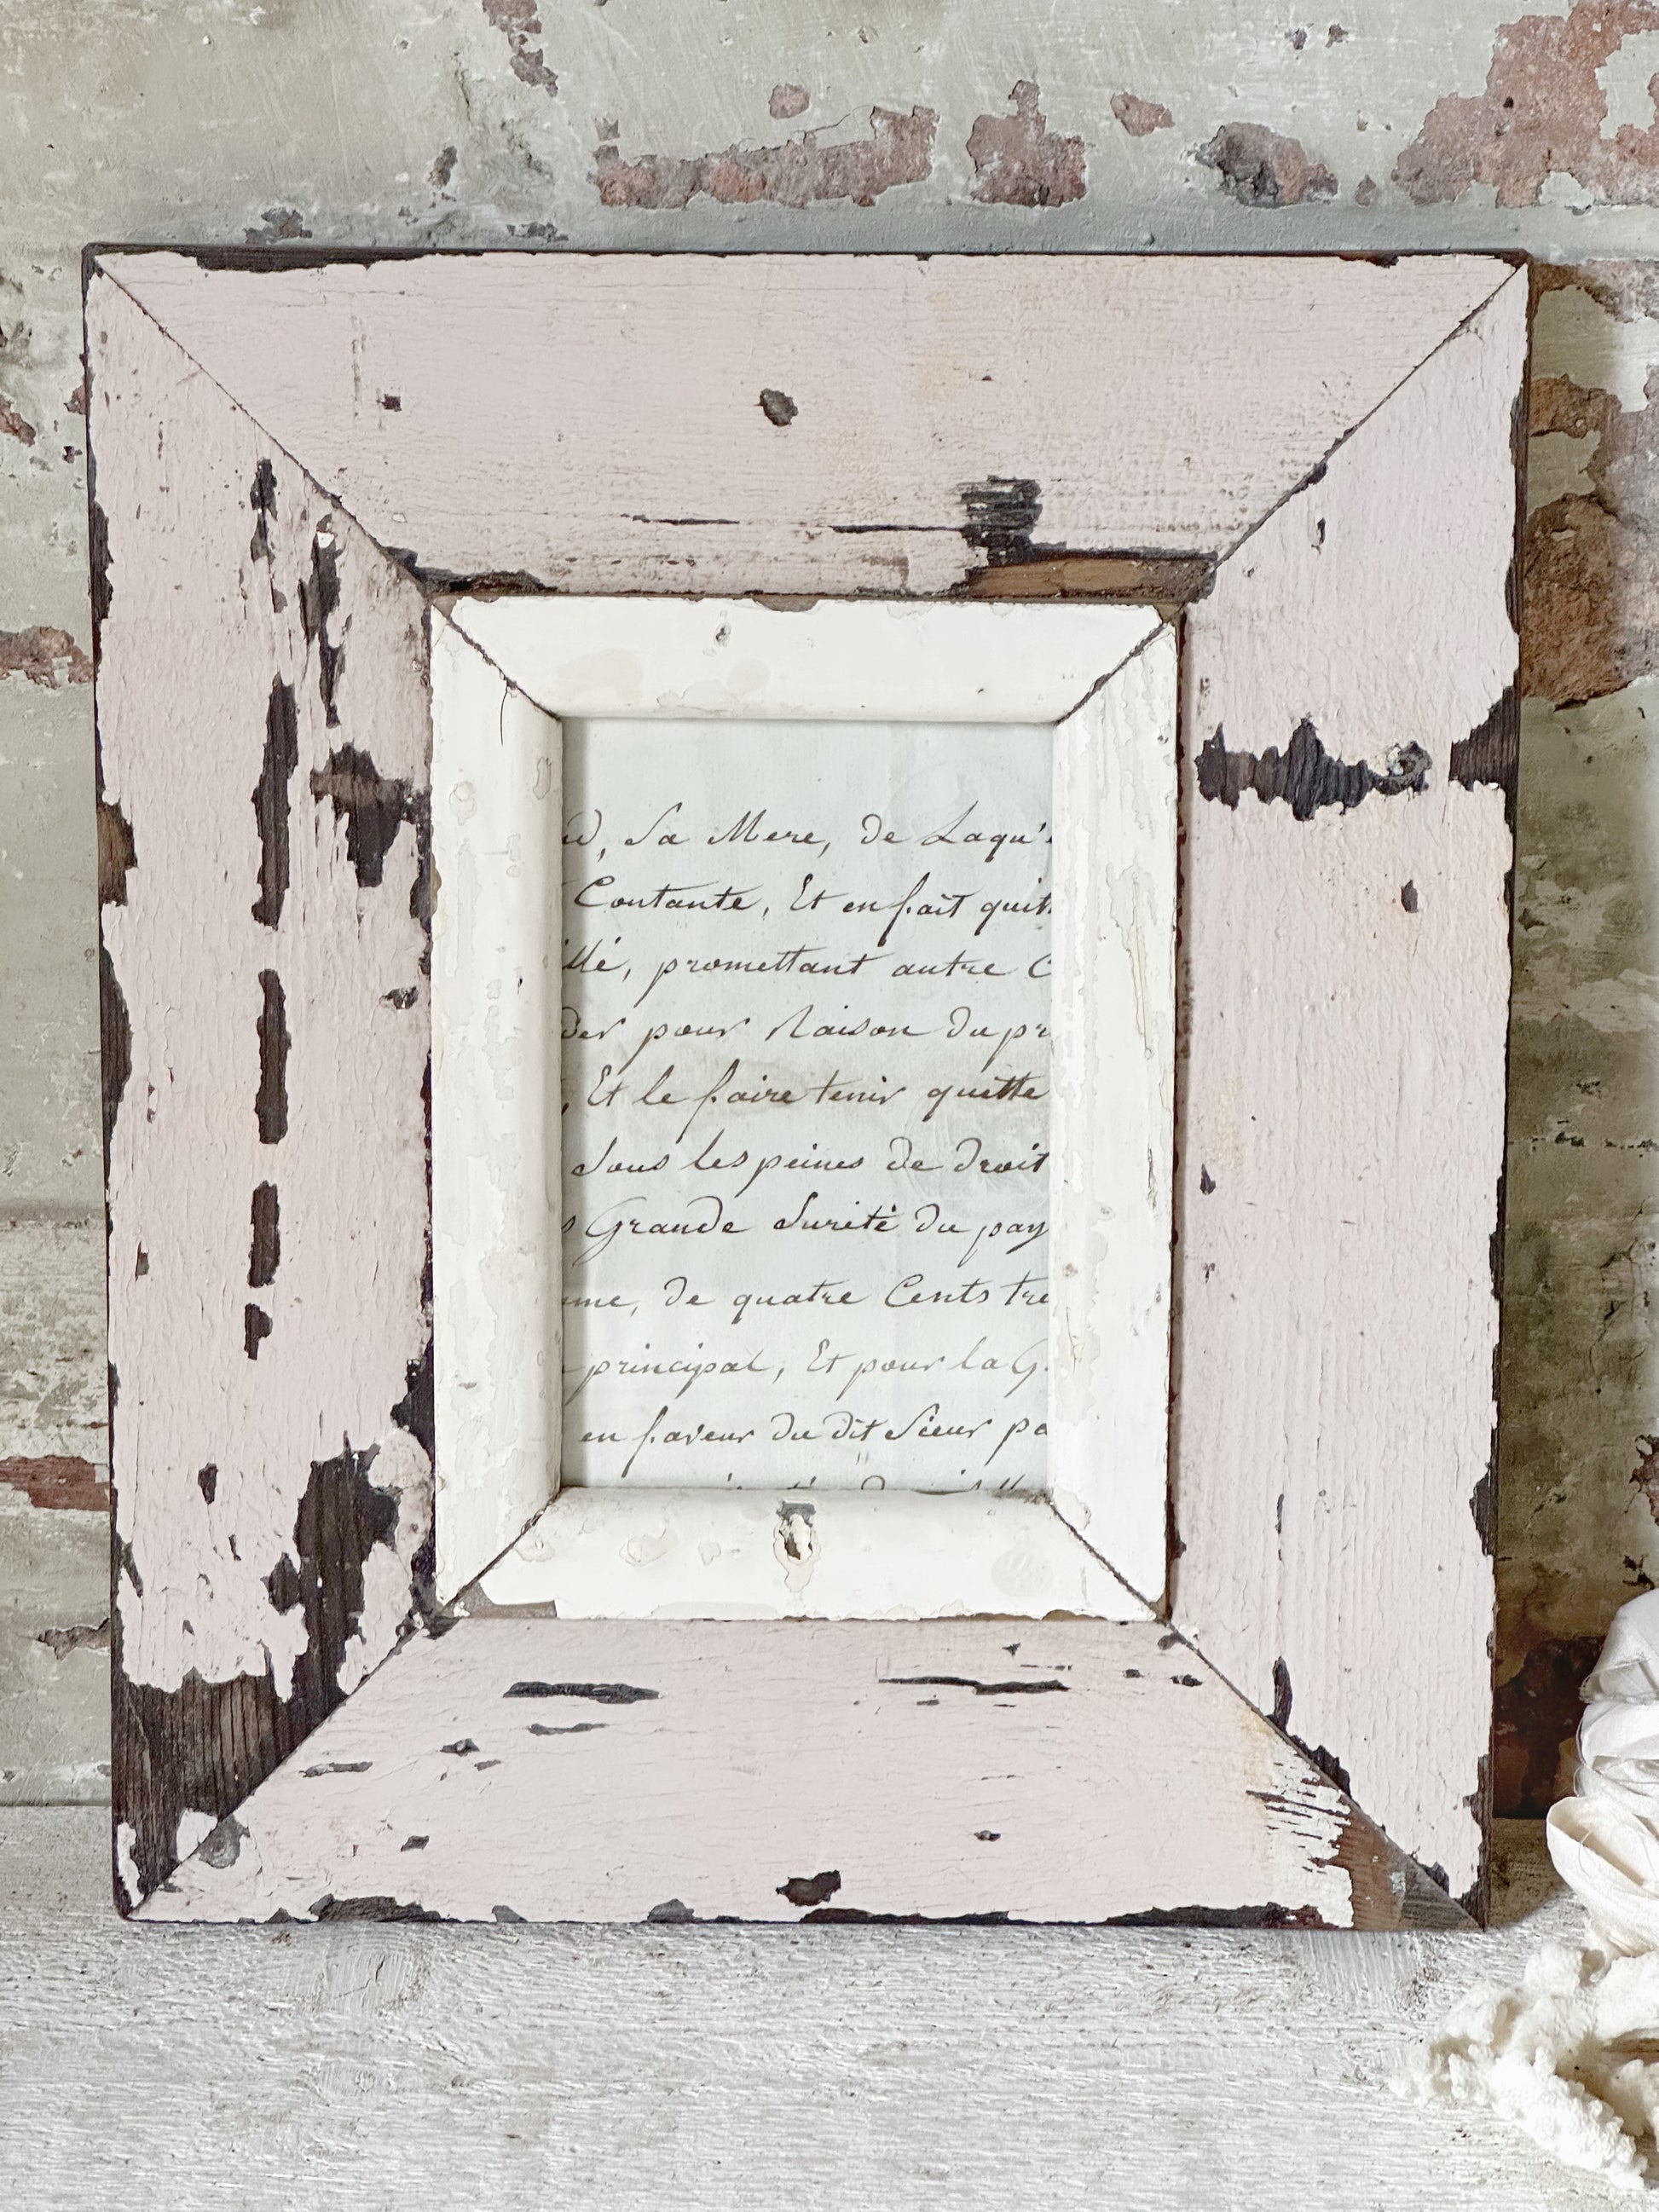 d, Sa Mere, de Laqu'e
Contante, Et en fait quitt
illé, promettant autre C
der pour Raison du pr
, Et le faire tenir quitte
Sous les peines de droit
s Grande Sureté du pay
me, de quatre Cents tre
principal, Et pour la G
en faveur du dit Sieur pa